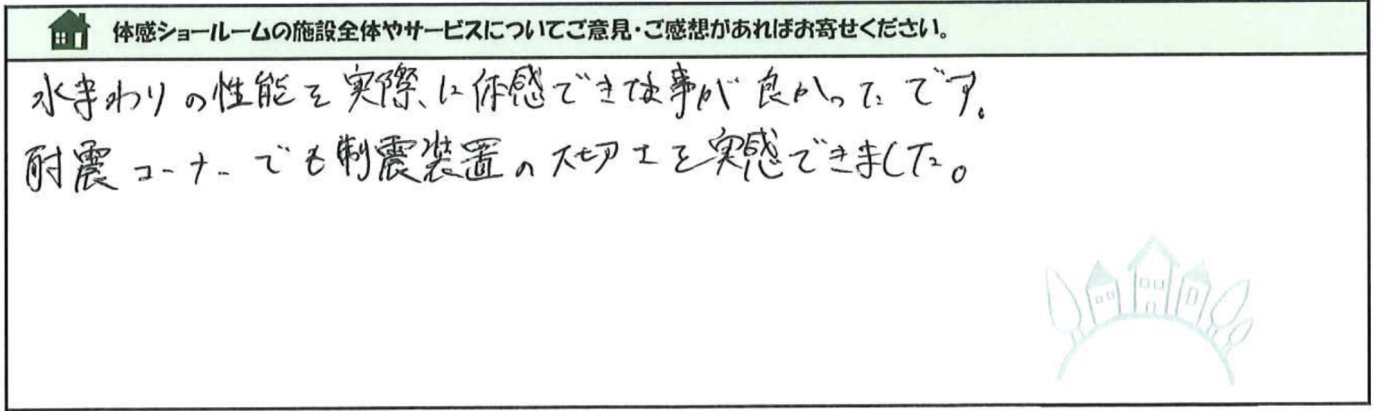 体感ショールームの施設全体やサービスについてご意見・ご感想があればお寄せください。
水まわりの性能を実際に体感できた事が良かったです。
耐震コーナーでも制震装置の大切さを実感できました。